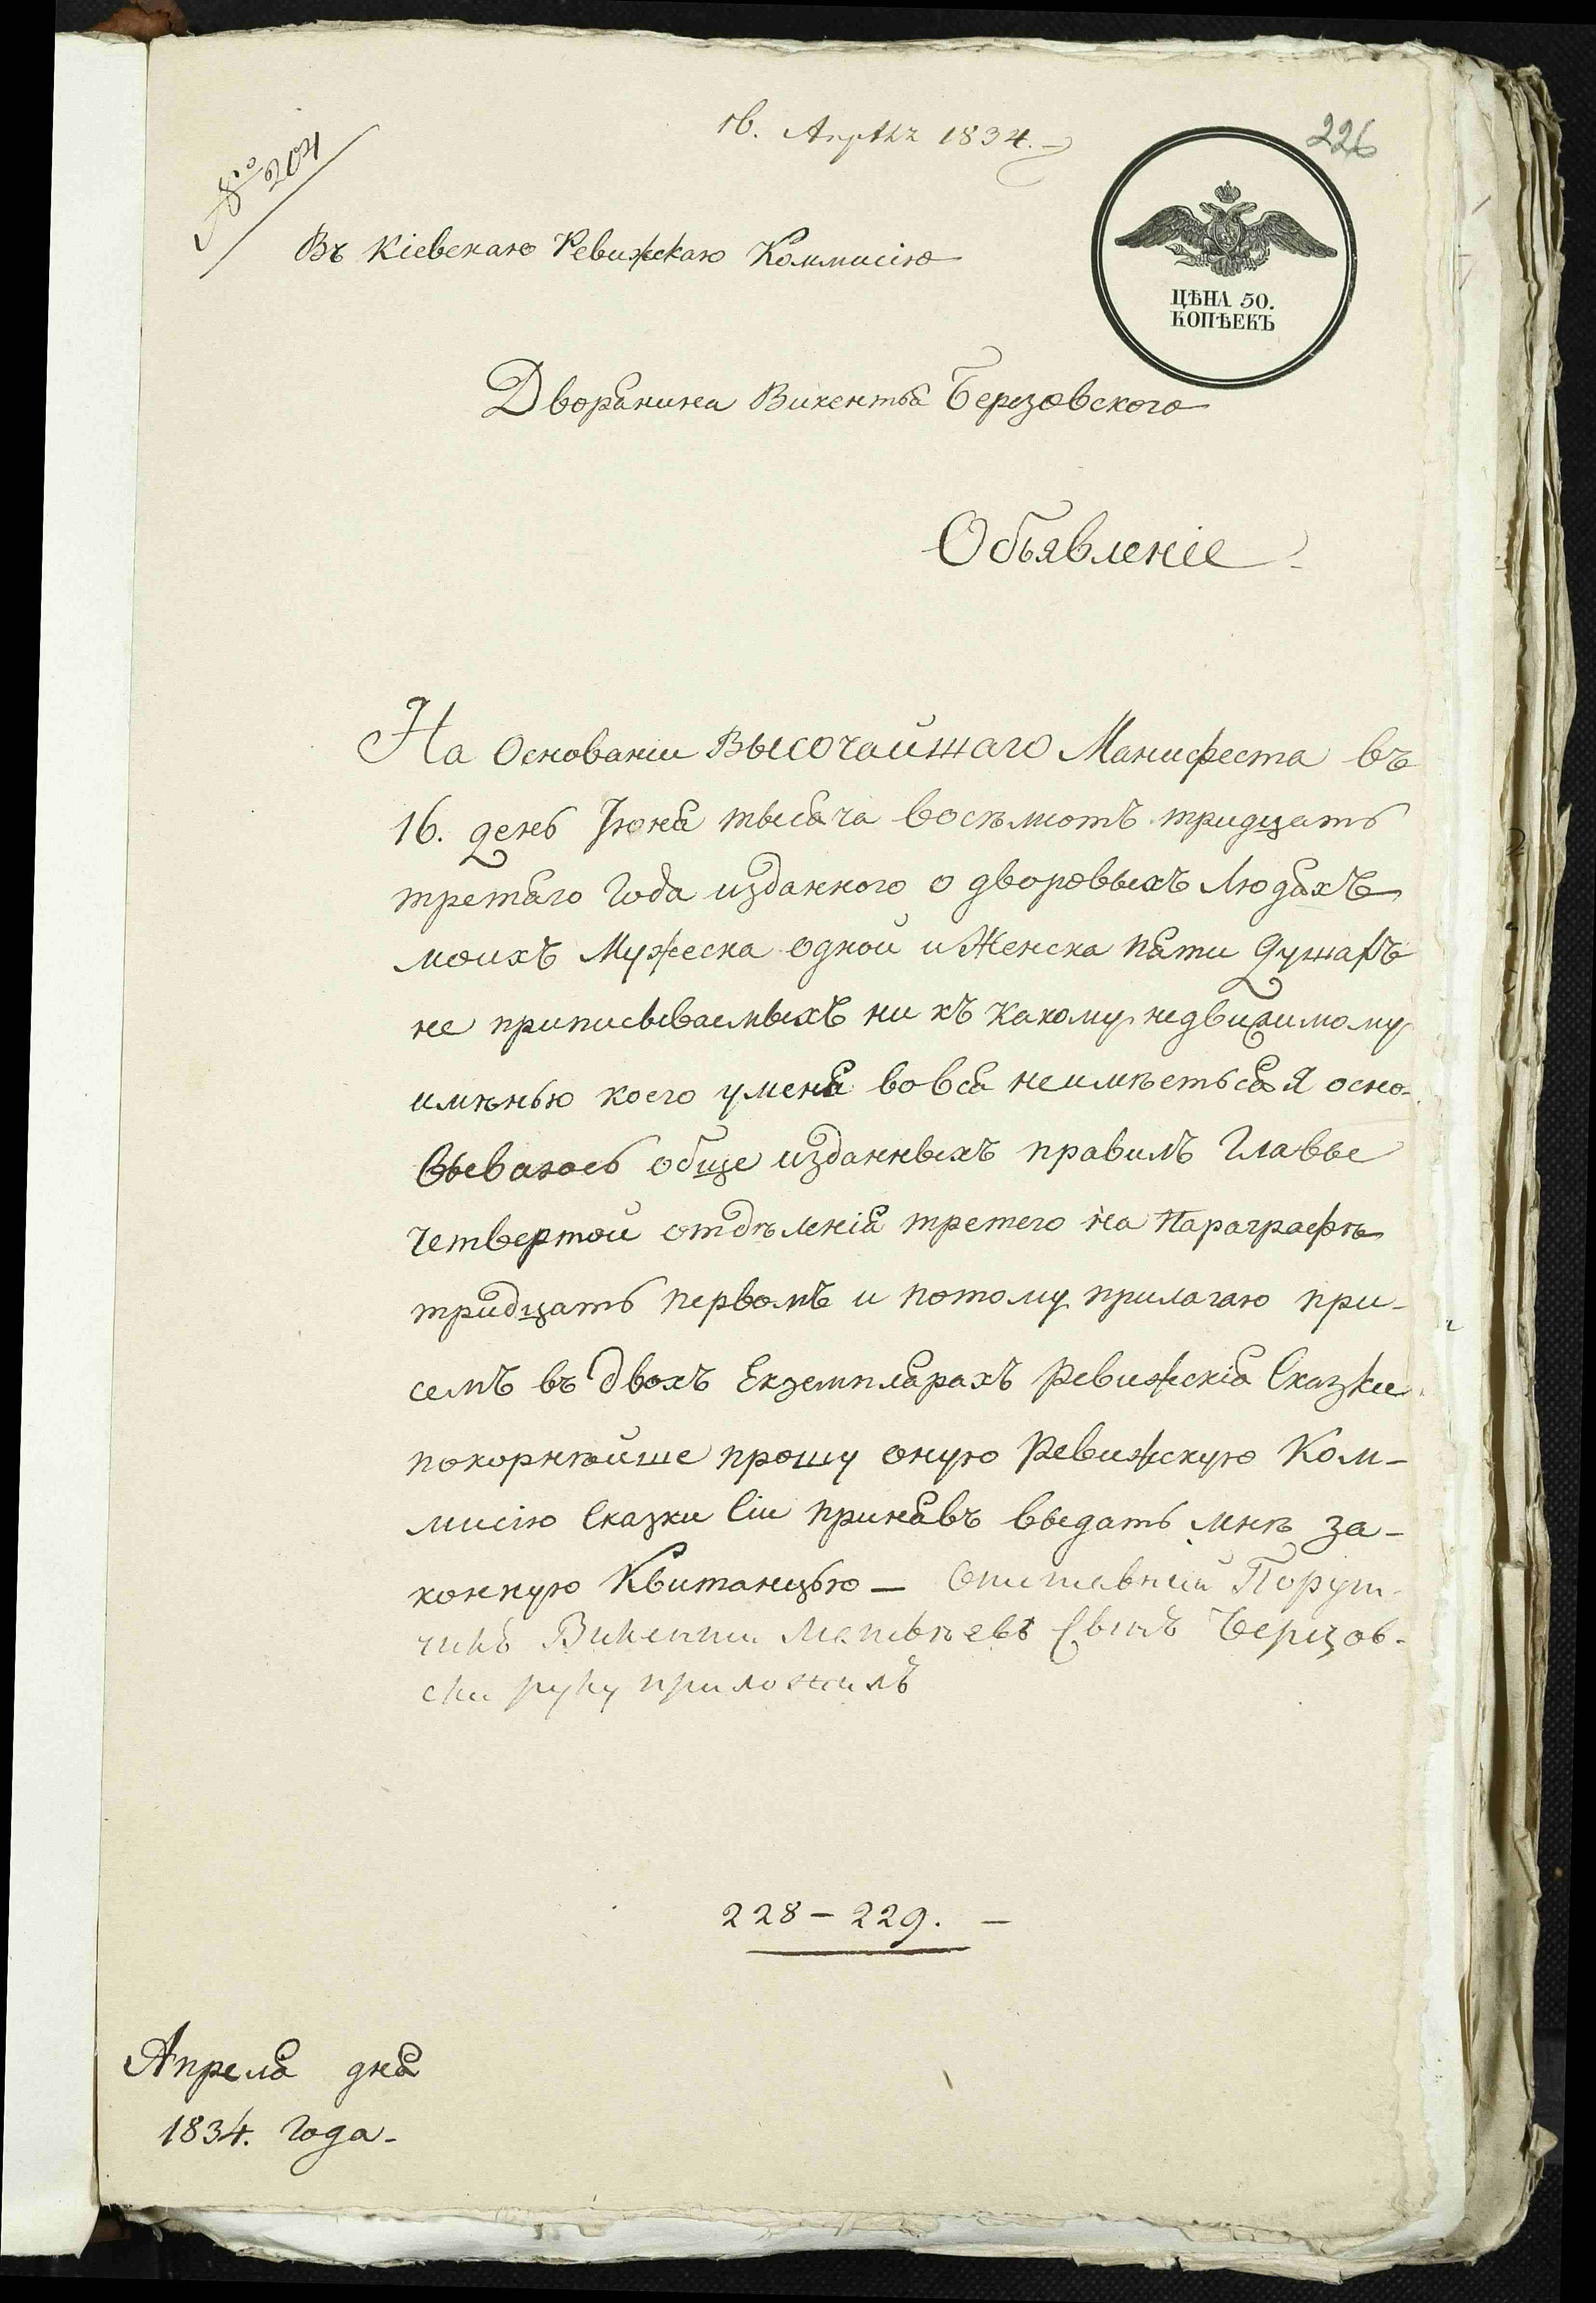 16. Апрѣлѧ 1834.
226
№ 204
Въ Кіевскаю Ревижскаю Коммисію
ЦѢНА 50.
КОПѢЕКЪ
Дворѧнина Викентьѧ Березовского
Объявленіе
На Основании Высочайшаго Манифеста въ
16. день Іюнѧ тысѧча восѣмсотъ тридцать
третѧго года изданного о дворовыхъ Людѧхъ
моихъ Мужеска одной и Женска пѧти душахъ
не приписываемыхъ ни къ какому недвижимому
имѣнью коего у менѧ вовсѧ неимѣетьсѧ Я осно-
вываюсь обще изданныхъ правилъ Главы
Четвертой отдѣленіѧ третего на Параграфѣ
тридцать первомъ и потому прилагаю при-
семъ въ двохъ Екземплѧрахъ Ревижскіѧ Сказки
покорнѣйше прошу оную Ревижскую Ком-
мисію Сказки Сіи принѧвъ выдать мнѣ за-
конную Квитанцью — Отставній Порут-
чикъ Викенти Матвѣевъ Сынъ Березов-
ски руку приложилъ
228 - 229. -
Апрелѧ днѧ
1834. Года -